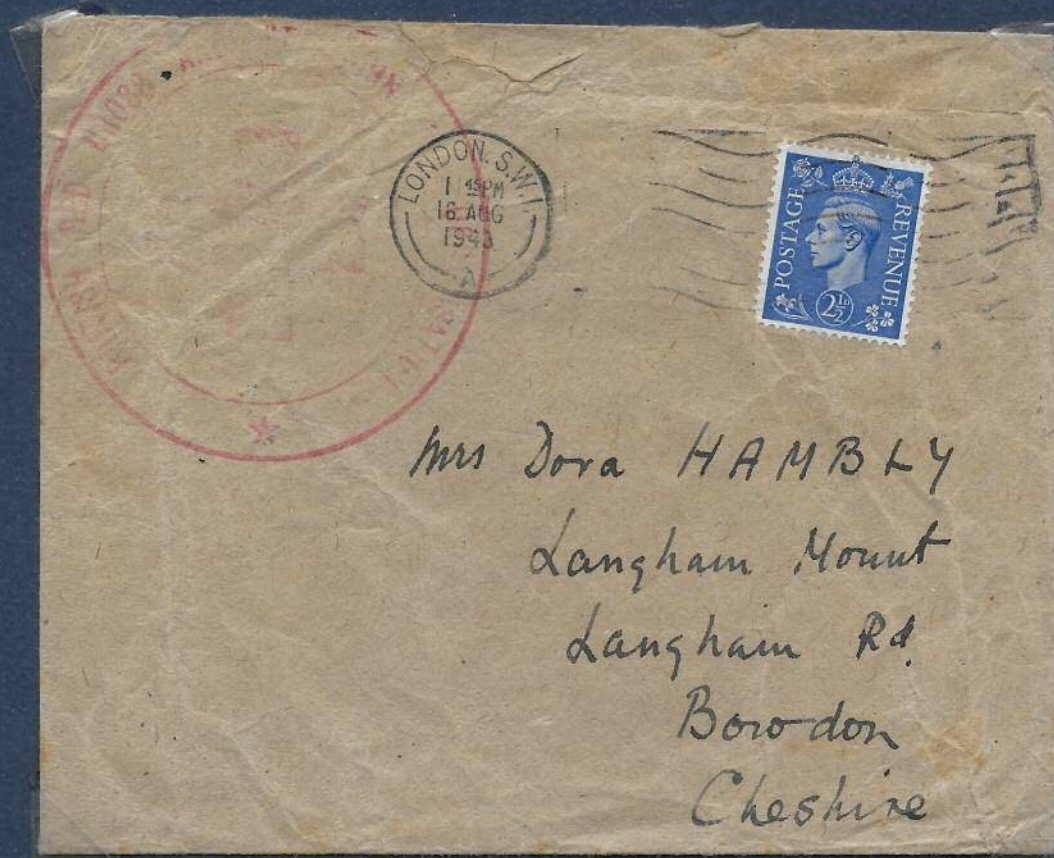 LONDON. S.W.1.
1 45 PM
16 AUG
1943
A
POSTAGE
REVENUE
2½D
Mrs Dora HAMBLY
Langham Mount
Langham Rd.
Bowdon
Cheshire